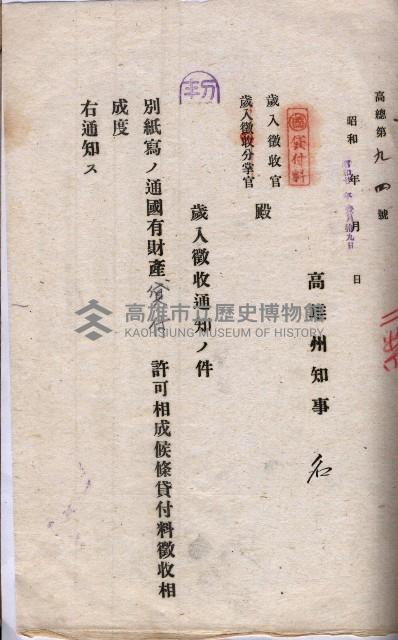 高總第九四號
昭和 年 月 日
高雄州知事 名
國 貸付料
歲入徵收官
歲入徵收分掌官
殿
歲入徵收通知ノ件
別紙寫ノ通國有財產貸付許可相成候條貸付料徵收相
成度
右通知ス
高雄市立歷史博物館
KAOHSIUNG MUSEUM OF HISTORY